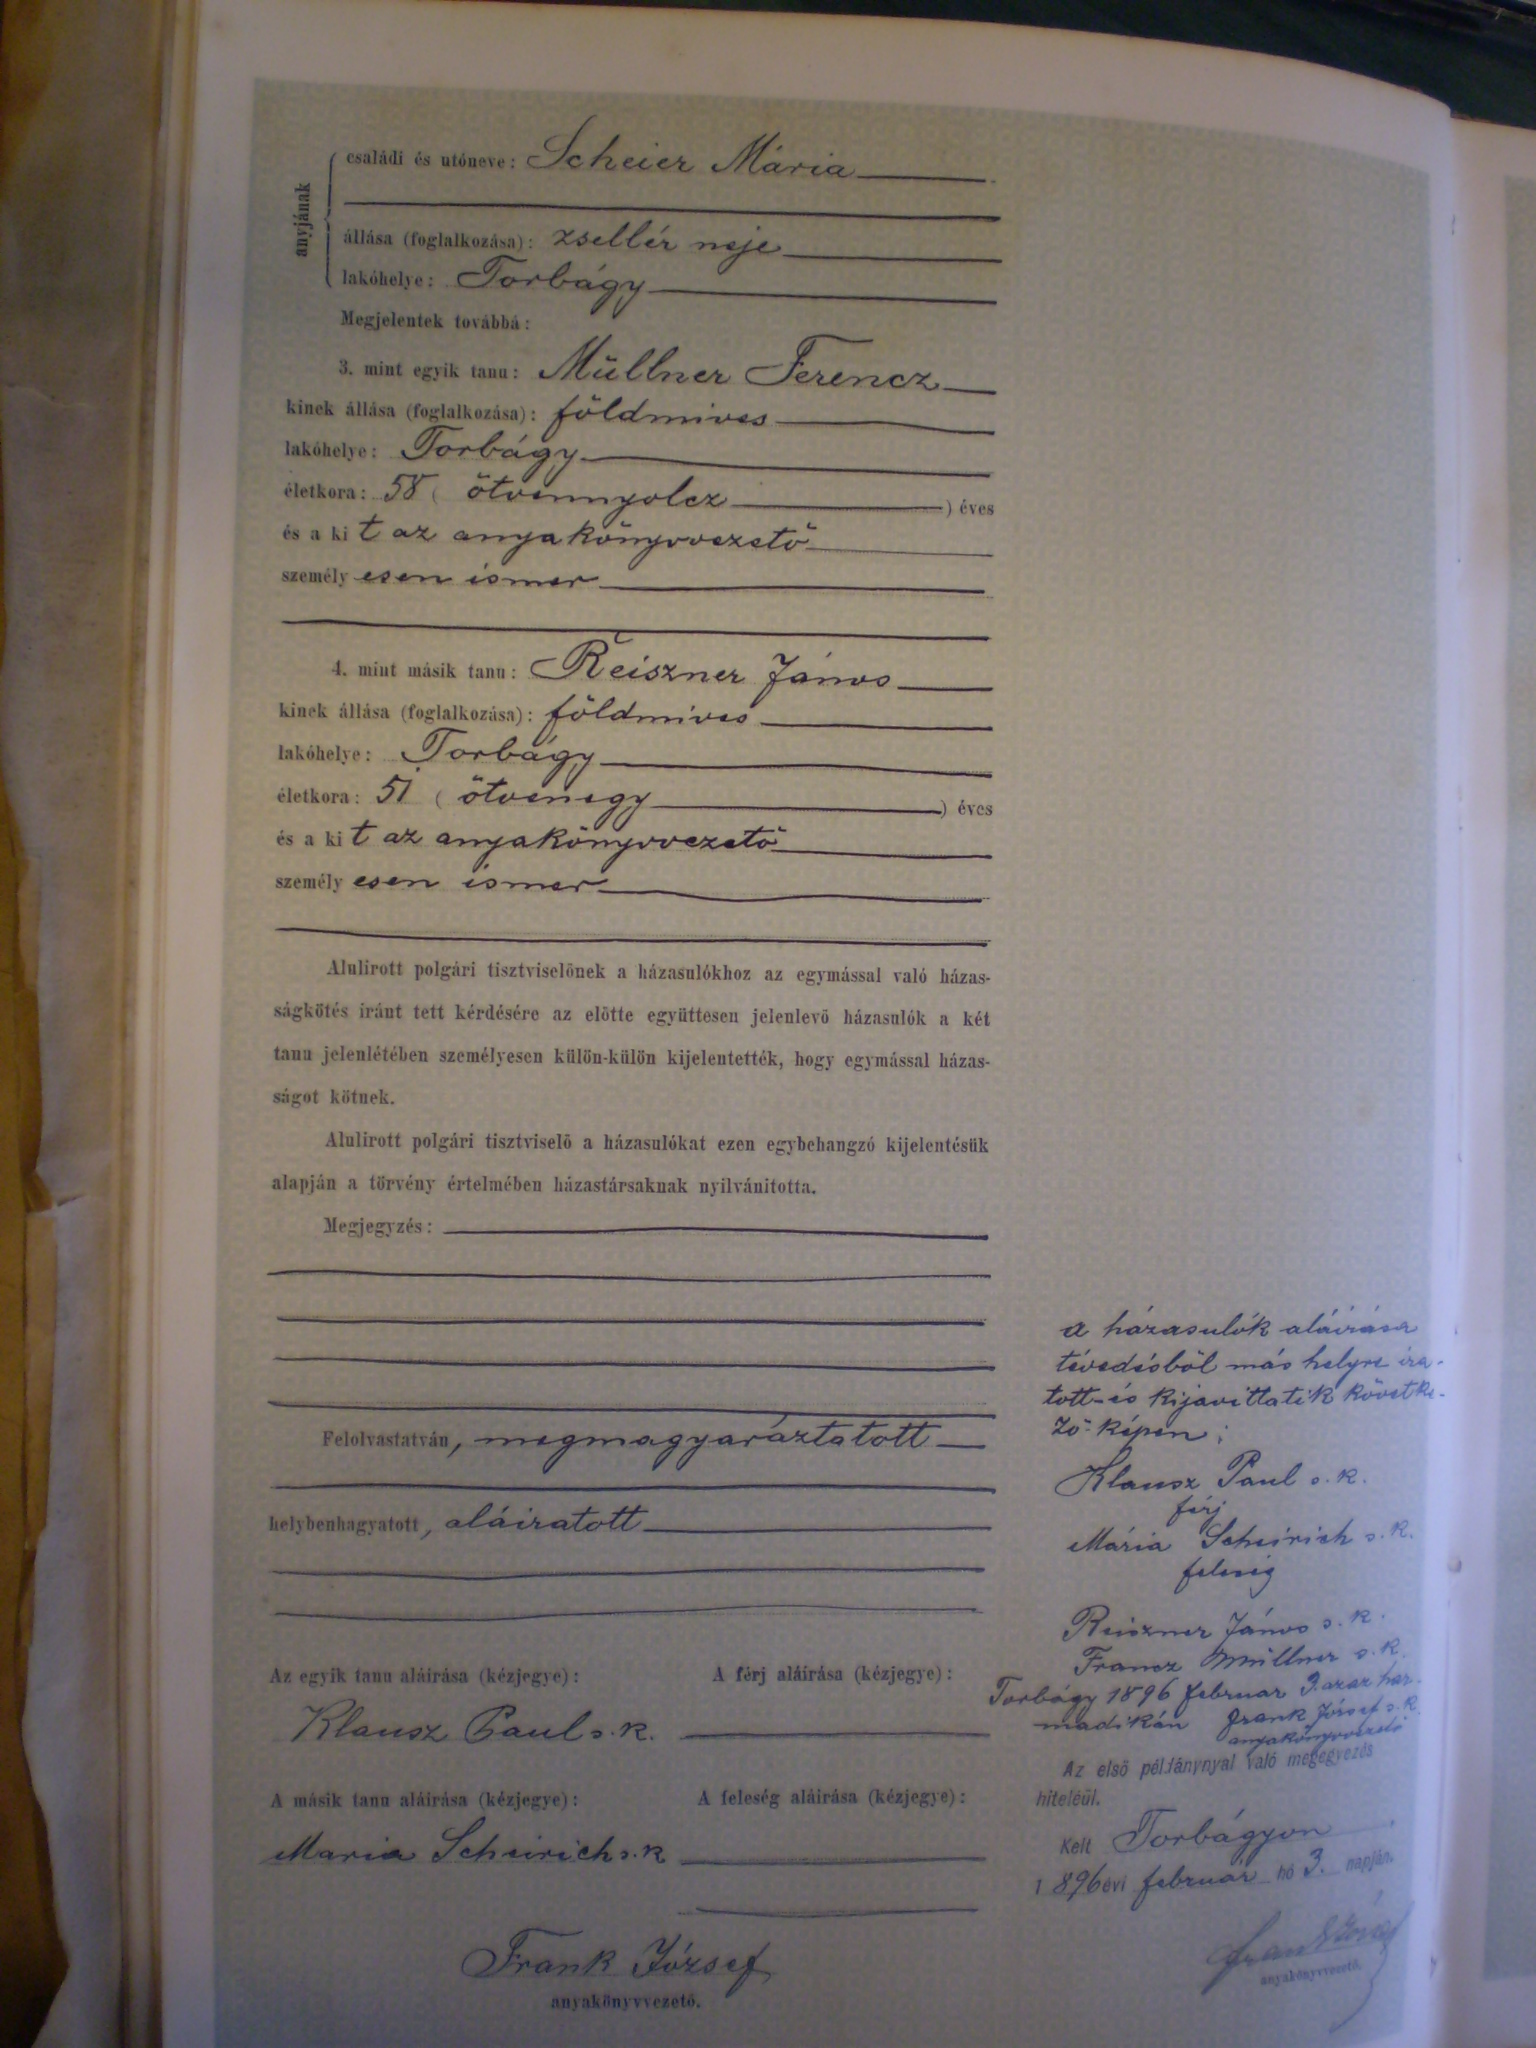 anyjának
családi és utóneve: Scheier Mária
állása (foglalkozása): zsellér neje
lakóhelye: Torbágy
Megjelentek továbbá:
3. mint egyik tanu: Müllner Ferencz
kinek állása (foglalkozása): földmives
lakóhelye: Torbágy
életkora: 58 ( ötvennyolcz ) éves
és a ki t az anyakönyvvezető
személy esen ismer
4. mint másik tanu: Reiszner János
kinek állása (foglalkozása): földmives
lakóhelye: Torbágy
életkora: 51 ( ötvenegy ) éves
és a ki t az anyakönyvvezető
személy esen ismer
Alulirott polgári tisztviselőnek a házasulókhoz az egymással való házas-
ságkötés iránt tett kérdésére az előtte együttesen jelenlevő házasulók a két
tanu jelenlétében személyesen külön-külön kijelentették, hogy egymással házas-
ságot kötnek.
Alulirott polgári tisztviselő a házasulókat ezen egybehangzó kijelentésük
alapján a törvény értelmében házastársaknak nyilvánitotta.
Megjegyzés:
Felolvastatván, megmagyaráztatott
helybenhagyatott, aláiratott
Az egyik tanu aláirása (kézjegye): A férj aláirása (kézjegye):
Klausz Paul s. k.
A másik tanu aláirása (kézjegye): A feleség aláirása (kézjegye):
Maria Scheirich s. k
Frank József
anyakönyvvezető.
a házasulók aláirása
tévedésböl más helyre ira-
tott és kijavittatik követke-
ző képen:
Klausz Paul s. k.
férj
Mária Scheirich s. k.
feleség
Reiszner János s. k.
Francz Müllner s. k.
Torbágy 1896 februar 3. azaz har-
madikán Frank József s. k.
anyakönyvvezető
Az első példánynyal való megegyezés
hiteléül.
Kelt Torbágyon
1896 évi február hó 3. napján.
Frank József
anyakönyvvezető.